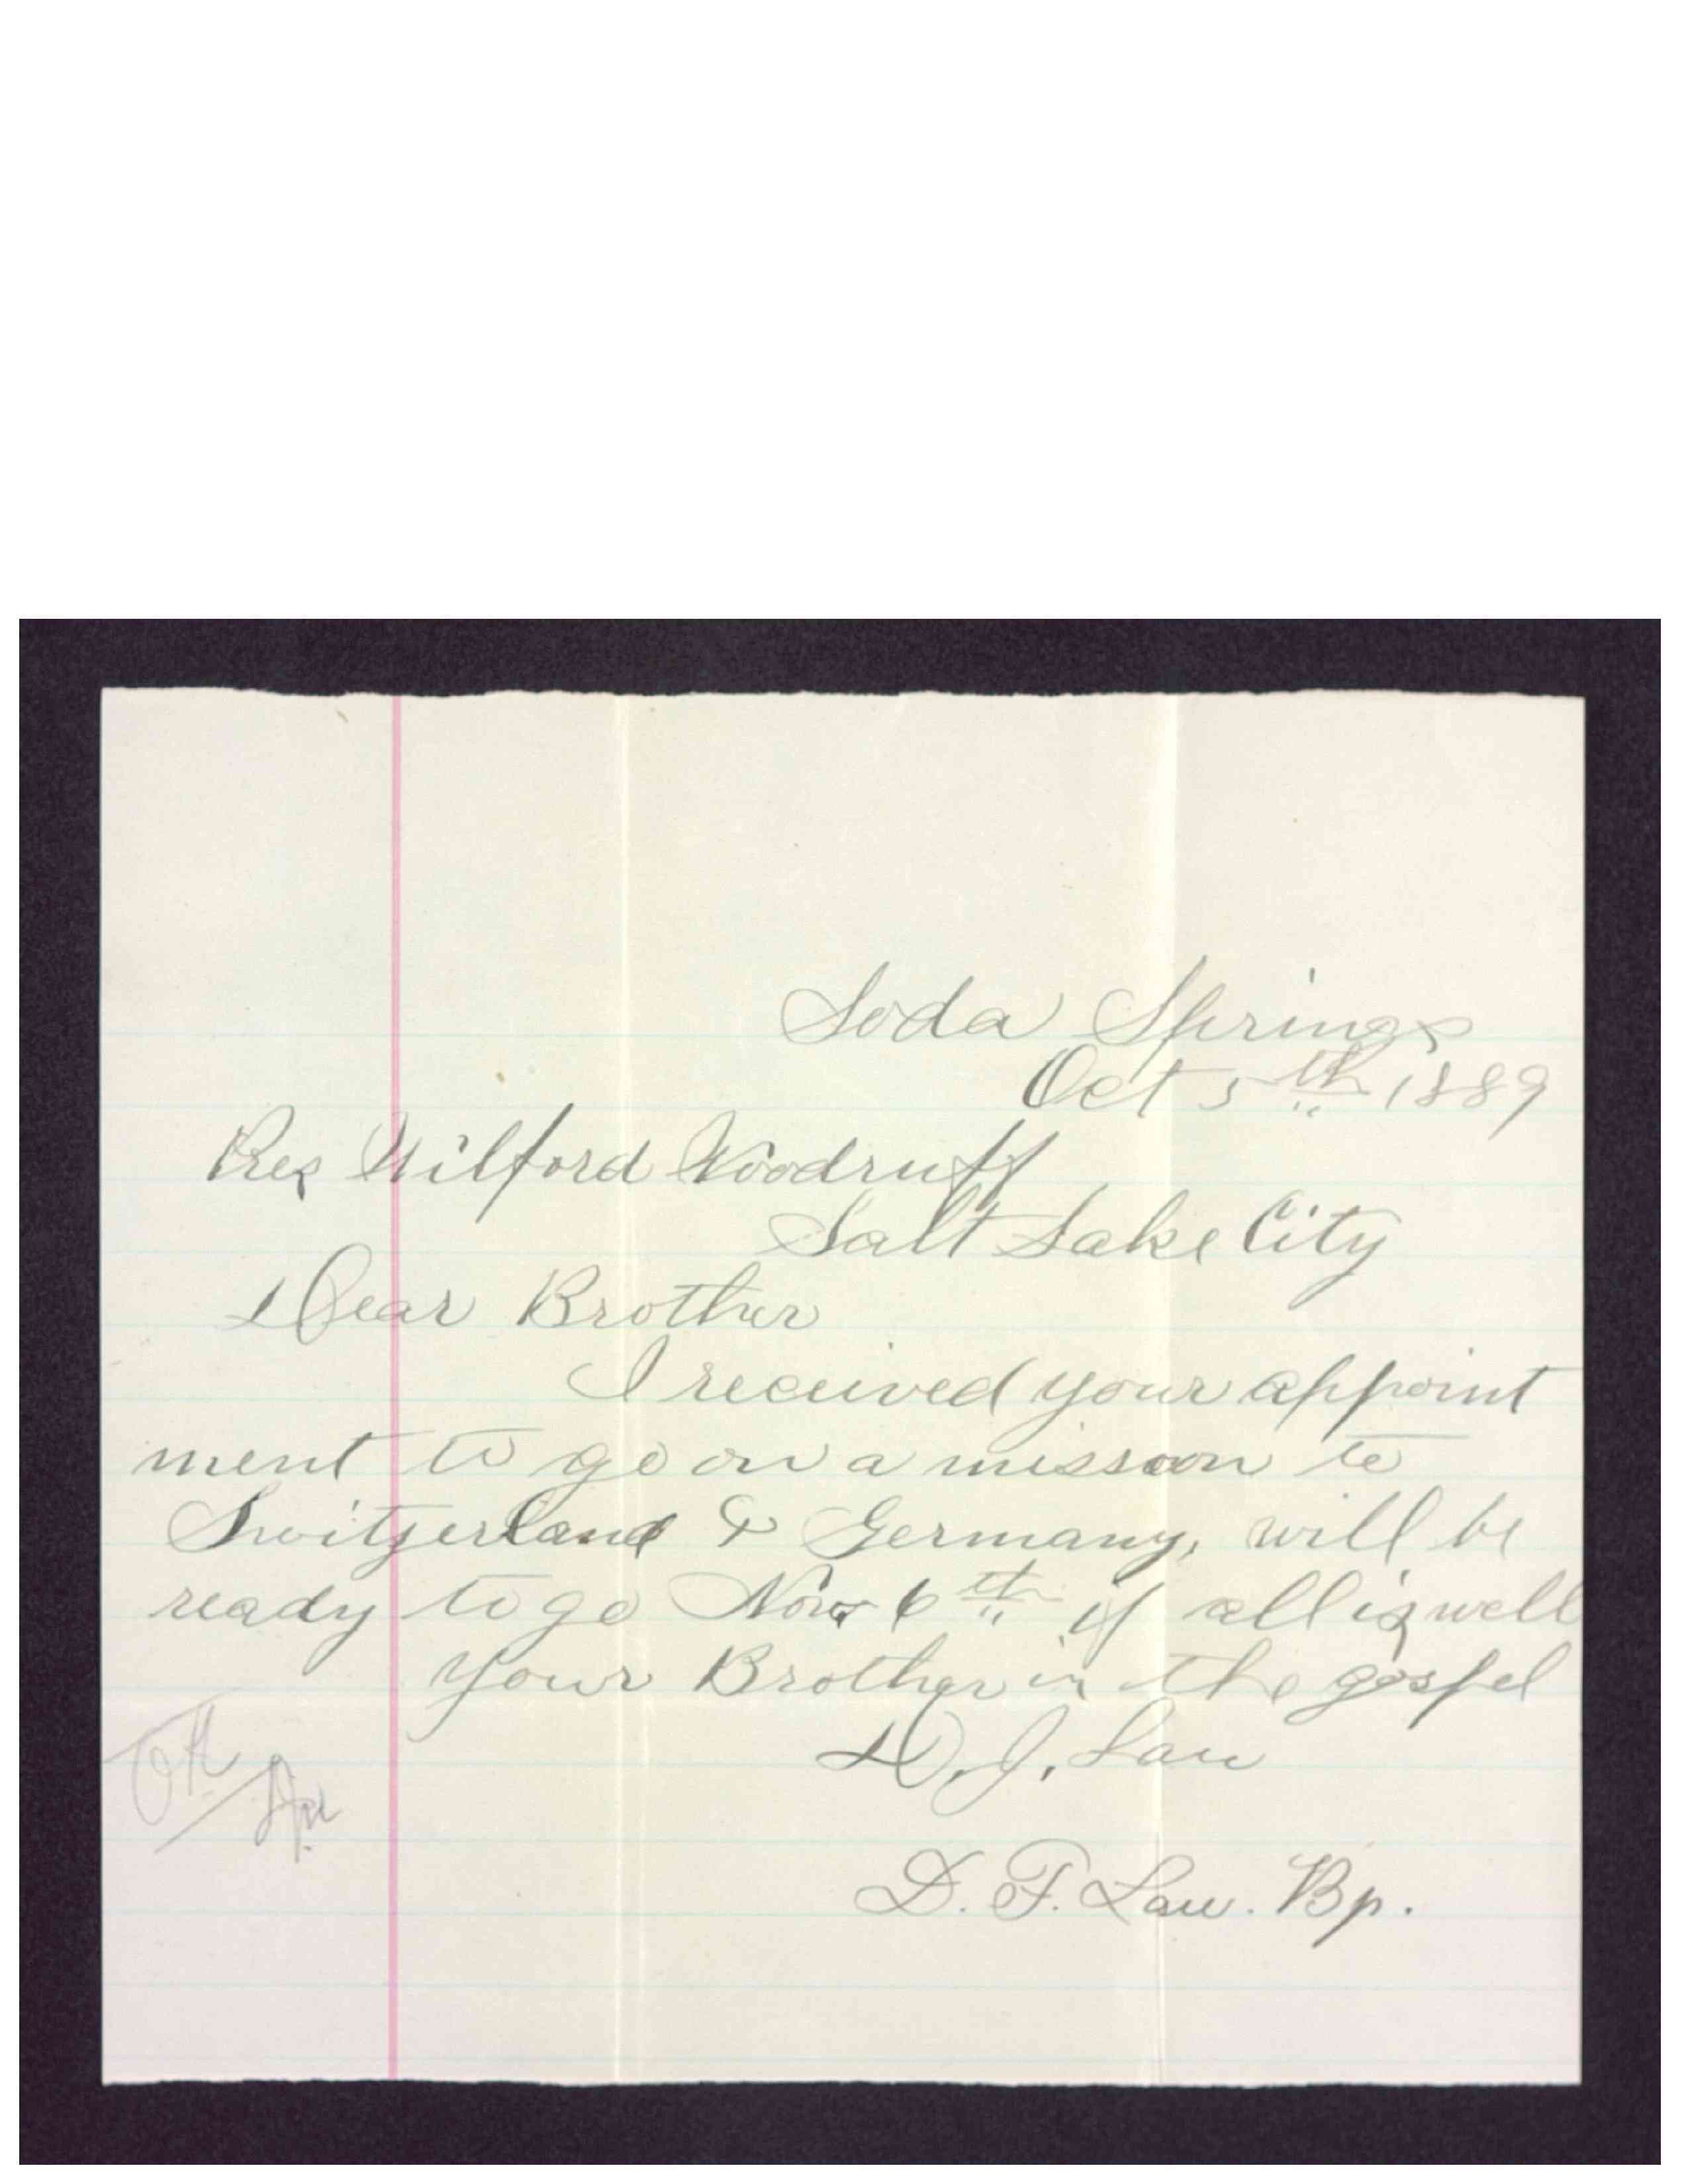 Soda Springs
Oct 5th 1889
Pres Wilford Woodruff
Salt Lake City
Dear Brother
I received your appoint
ment to go on a misson to
Switzerland & Germany, will be
ready to go Nov 6th if all is well
Your Brother in the gospel
D. J. Lau
D. F. Lau. Bp.